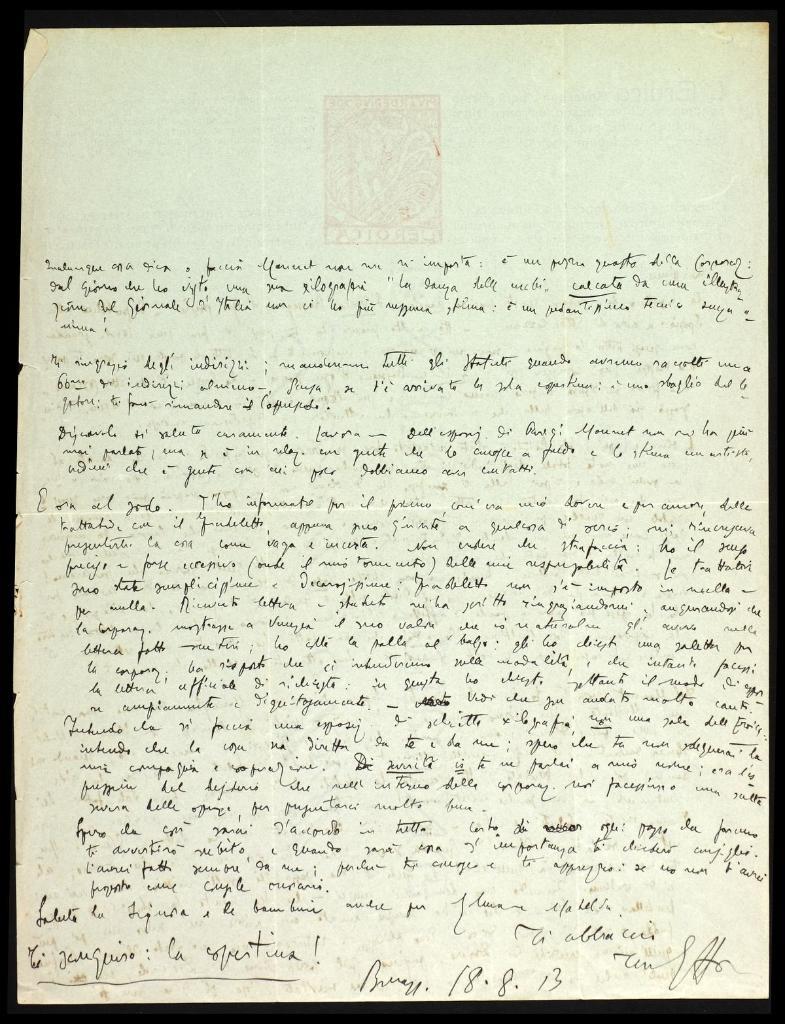 Qualunque cosa dica o faccia Mannet non me ne importa: è un pezzo guasto della Corporaz:
dal giorno che ho visto una sua xilografia "la danza delle nubi" calcata da una illustra
zione del Giornale d'Italia non ci ho più nessuna stima: è un pedantissimo tecnico senza a
nima!
Ti ringrazio degli indirizzi; manderemo tutti gli statuti quando avremo raccolto una
60na di indirizzi almeno. Pensa se t'è arrivata la sola copertina: è uno sbaglio del le
gatore: ti farò rimandare il
ti saluta caramente. Lavora — Dell'esposiz. di Parigi Mannet non mi ha più
mai parlato; ma se è in relaz. con gente che lo conosce a fondo e lo stima un artista,
vedrai che è gente con cui poco dobbiamo aver contatti.
E ora al sodo. T'ho informato per il primo, com'era mio dovere e per amore, delle
trattative con il Fradeletto, appena sono giunte a qualcosa di serio: mi rincresceva
presentarti la cosa come vaga e incerta. Non credere che strafaccia: ho il senso
preciso e forse eccessivo (onde il mio tormento) delle mie responsabilità. Le trattative
sono state semplicissime e decorosissime: Fradeletto non s'è imposto in nulla —
per nulla. Ricevuta lettera e statuto mi ha scritto ringraziandomi, augurandosi che
la corporaz. mostrasse a Venezia il suo valore che io naturalm. gli avevo nella
lettera fatto sentire; ho colto la palla al balzo: gli ho chiesto una saletta per
la corporaz; ha risposto che ci intenderemo sulle modalità, e che intanto facessi
la lettera ufficiale di richiesta: in questa ho chiesto soltanto il modo di espor
re ampiamente e dignitosamente. — Vedi che son andato molto cauto.
Intendo che si faccia una esposiz. di scelta xilografia, non una sala dell'Eroica:
intendo che la cosa sia diretta da te e da me; spero che tu non sdegnerai la
mia compagnia e cooperazione. Di severità io te ne parlai a mio nome; era l'es
pressione del desiderio che nell'interno della corporaz. noi facessimo una scelta
severa delle opere, per presentarci molto bene.
Spero che così sarai d'accordo in tutto. Certo, di ogni passo che faremo
ti avvertirò subito, e quando sarà cosa d'importanza ti chiederò consiglio.
L'avrei fatto sempre, da me; perché ti conosco e ti apprezzo: se no non t'avrei
proposto come
Saluta la Signora e le bambine anche per Gilma e Matelda.
Ti abbraccio
tuo Ettore
Ti scongiuro: la copertina!
18.8.13
L'Eroica
L'EROICA